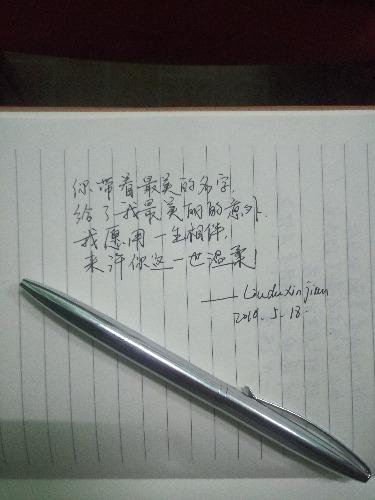 你带着最美的名字,
给了我最美丽的意外.
我愿用一生相伴,
来许你这一世温柔!
2019.5.18.